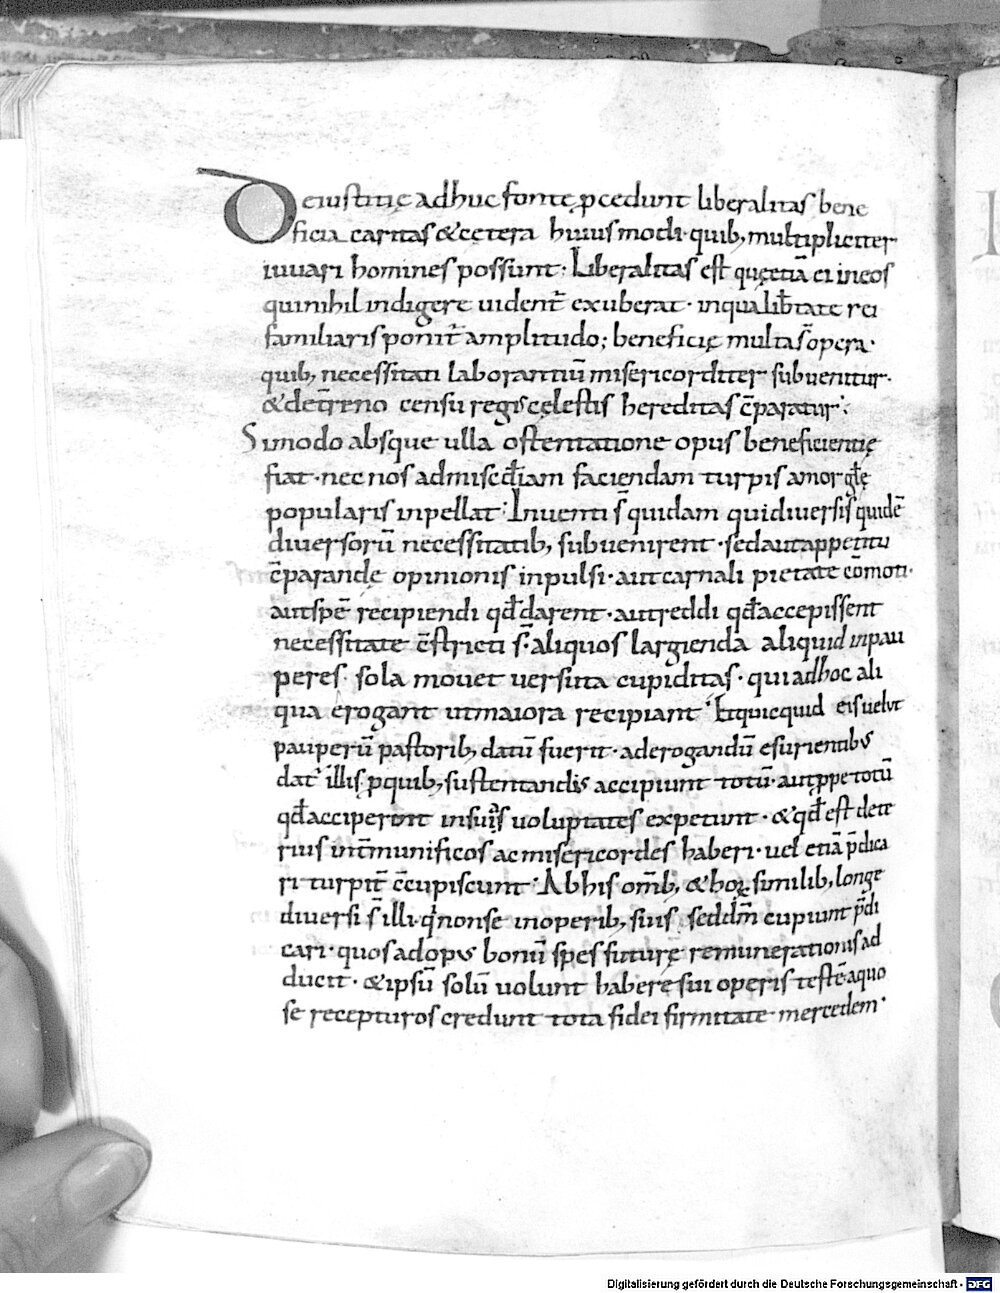 De iustitię adhuc fonte p̱cedunt liberalitas bene
ficia caritas & cętera huiusmodi · quib; multipliciter
iuuari homines possunt : Liberalitas est quę etiā ei in eos
qui nihil indigere uident̄ exuberat · in qua lib̄tate rei
familiaris ponit̄ amplitudo ; beneficię multas̄ opera ·
quib; necessitati laborantiū misericorditer subuenitur ·
& de t̄reno censu regis cęlestis hereditas c̄paratur :
Si modo absque ulla ostentatione opus beneficientię
fiat · nec nos ad misc̄diam faciendam turpis amor gl̄ę
popularis inpellat : Inuenti s̄ quidam qui diuersis quidē
diuersorū necessitatib; subuenirent · sed aut appetitu
c̄parandę opinionis inpulsi · aut carnali pietate cōmoti ·
aut spē recipiendi qđ darent · aut reddi qđ accepissent
necessitate c̄stricti s̄ · aliquos largienda aliquid in pau
peres · sola mouet uersuta cupiditas · qui adhoc ali
qua erogant ut maiora recipiant : Et quicquid eis uelut
pauperū pastorib; datū fuerit · ad erogandū esurientibus
dat̄ illis p̱ quib; sustentandis accipiunt totū · aut p̱pe totū
qđ acciperunt in suis uoluptates expetunt · & qđ est dete
rius int̄ munificos ac misericordes haberi · uel etiā p̄dica
ri turpit̄ c̄cupiscunt : Ab his om̄ib; & hoꝝ similib; longe
diuersi s̄ illi · q̇ non se in operib; suis · sed dm̄ cupiunt p̄di
cari · quos ad opus bonū spes futurę remunerationis ad
ducit · & ipsū solū uolunt habere sui operis testē · a quo
se recepturos credunt tota fidei firmitate mercedem ·
Digitalisierung gefördert durch die Deutsche Forschungsgemeinschaft - DFG